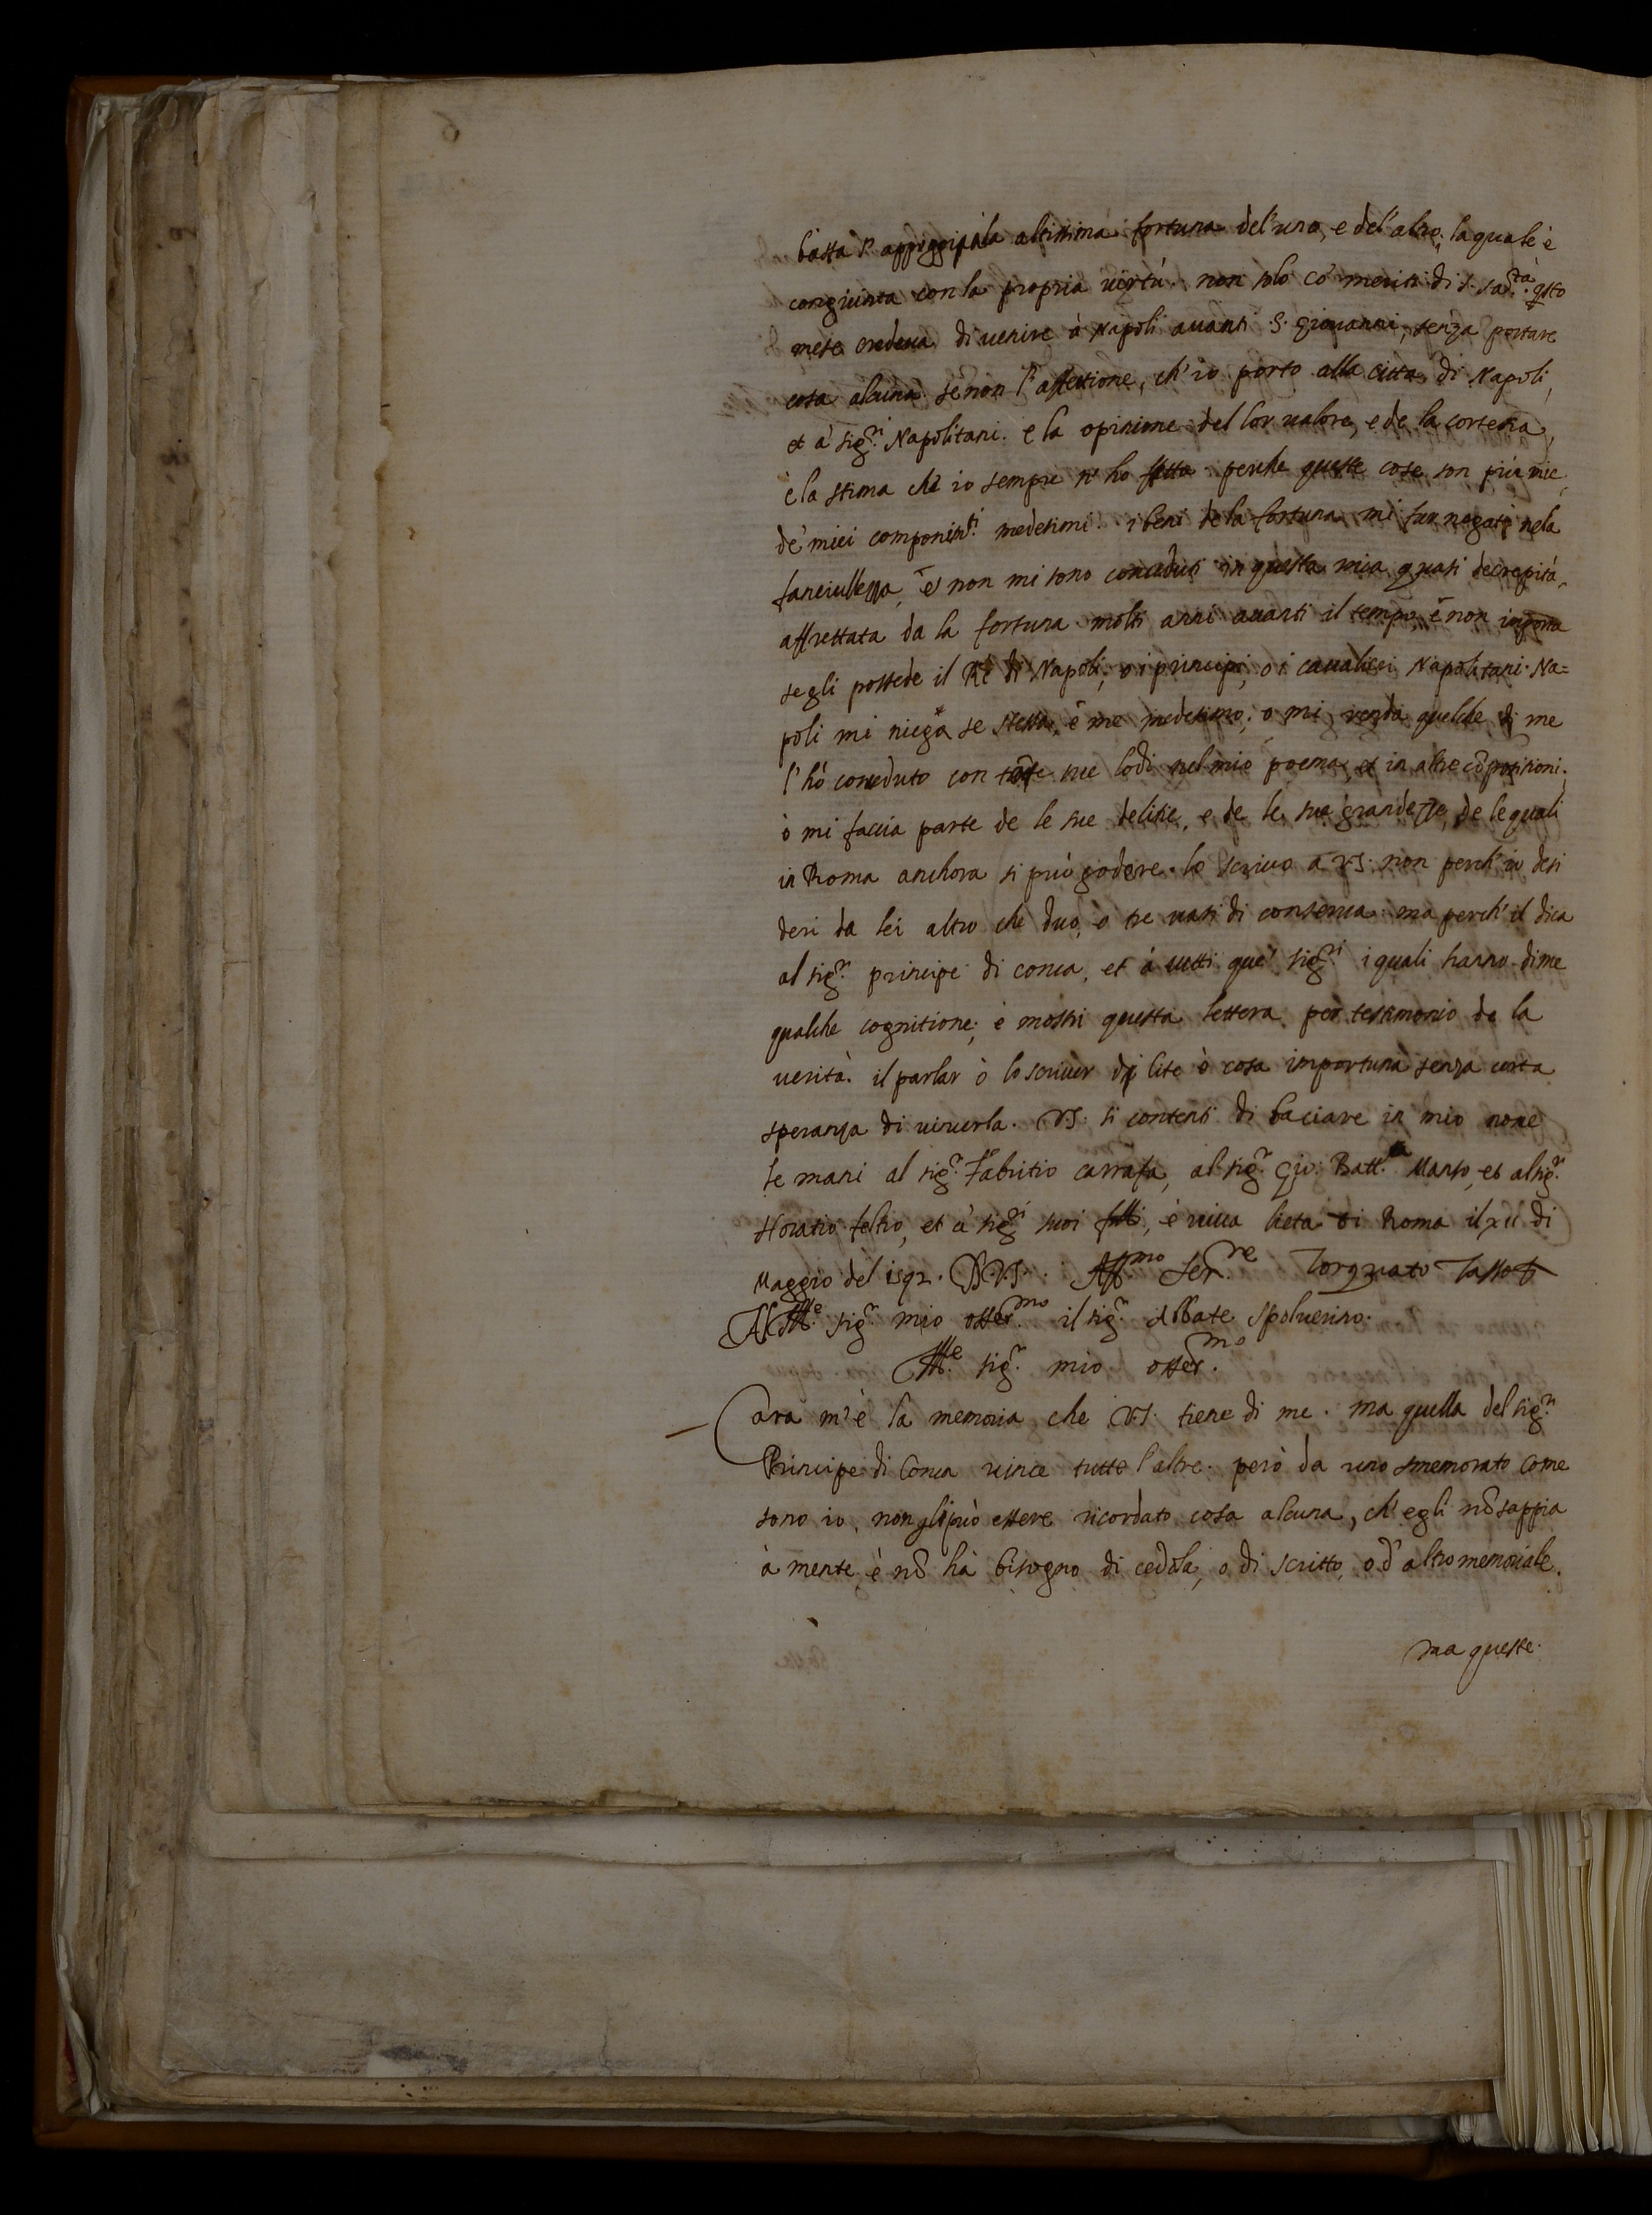 basta l'appoggio, ala altissima fortuna del'uno, e del'altro, la quale è
congiunta con la propria uirtù. non solo co' meriti di S. Sa.tà qsto
mese credeua di uenire à Napoli auanti S. giouanni, senza portare
cosa alcuna se non l'affettione, ch'io porto alla citta di Napoli,
et a' sig.ri Napolitani. e la opinione del lor ualore, e de la cortesia,
è la stima che io sempre n'ho fatta. perche queste cose son più mie,
de' miei componim.ti medesimi. i beni de la fortuna mi fur negati nela
fanciullezza, è non mi sono conceduti in questa mia quasi decrepità,
affrettata da la fortuna molti anni auanti il tempo, è non importa
se gli possede il Rè di Napoli, o i principi, o i caualieri Napolitani. Na=
poli mi niega se stessa, è me medesimo. o mi renda quelche di me
l'hò conceduto con tante sue lodi nel mio poema, et in altre cōpositioni.
ò mi faccia parte de le sue delitie, e de le sue grandezze, de le quali
in Roma anchora si può godere. lo scriuo a V.S. non perch'io desi
deri da lei altro che duo, o tre uasi di conserua. ma perch'il dica
al sig.r principe di conca, et à tutti que' sig.ri i quali hanno di me
qualche cognitione, è mostri questa lettera per testimonio de la
uerità. il parlar ò lo scriuer di lite è cosa importuna senza certa
speranza di uincerla. V.S. si contenti di baciare in mio nome
le mani al sig.r Fabritio carrafa, al sig.r Gio: Batt.a Manso, et al sig.r
Horatio feltro, et à sig.ri suoi flli, è uiua lieta di Roma il xii di
Maggio del 1592. D.V.S. Aff.mo Ser.re Torquato Tasso
Al Ill.e sig.r mio osser.mo il sig.r Abbate Spoluerino.
Ill.e sig.r mio osser.mo
Cara m'è la memoria che V.S. tiene di me. ma quella del sig.r
Principe di Conca uince tutte l'altre. però da uno smemorato come
sono io, non gli può essere ricordato cosa alcuna, ch'egli nō sappia
à mente, è nō hà bisogno di cedola, o di scritto, o d'altro memoriale.
ma queste